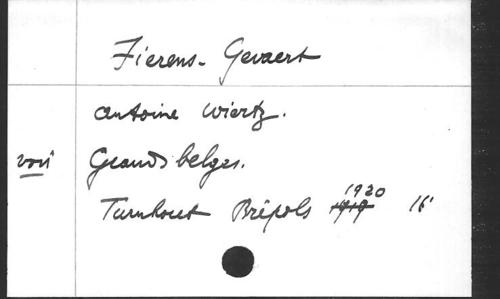 Fierens-Gevaert
Antoine Wiertz.
voir Grands belges.
Turnhout Brépols 1919 1920 16°